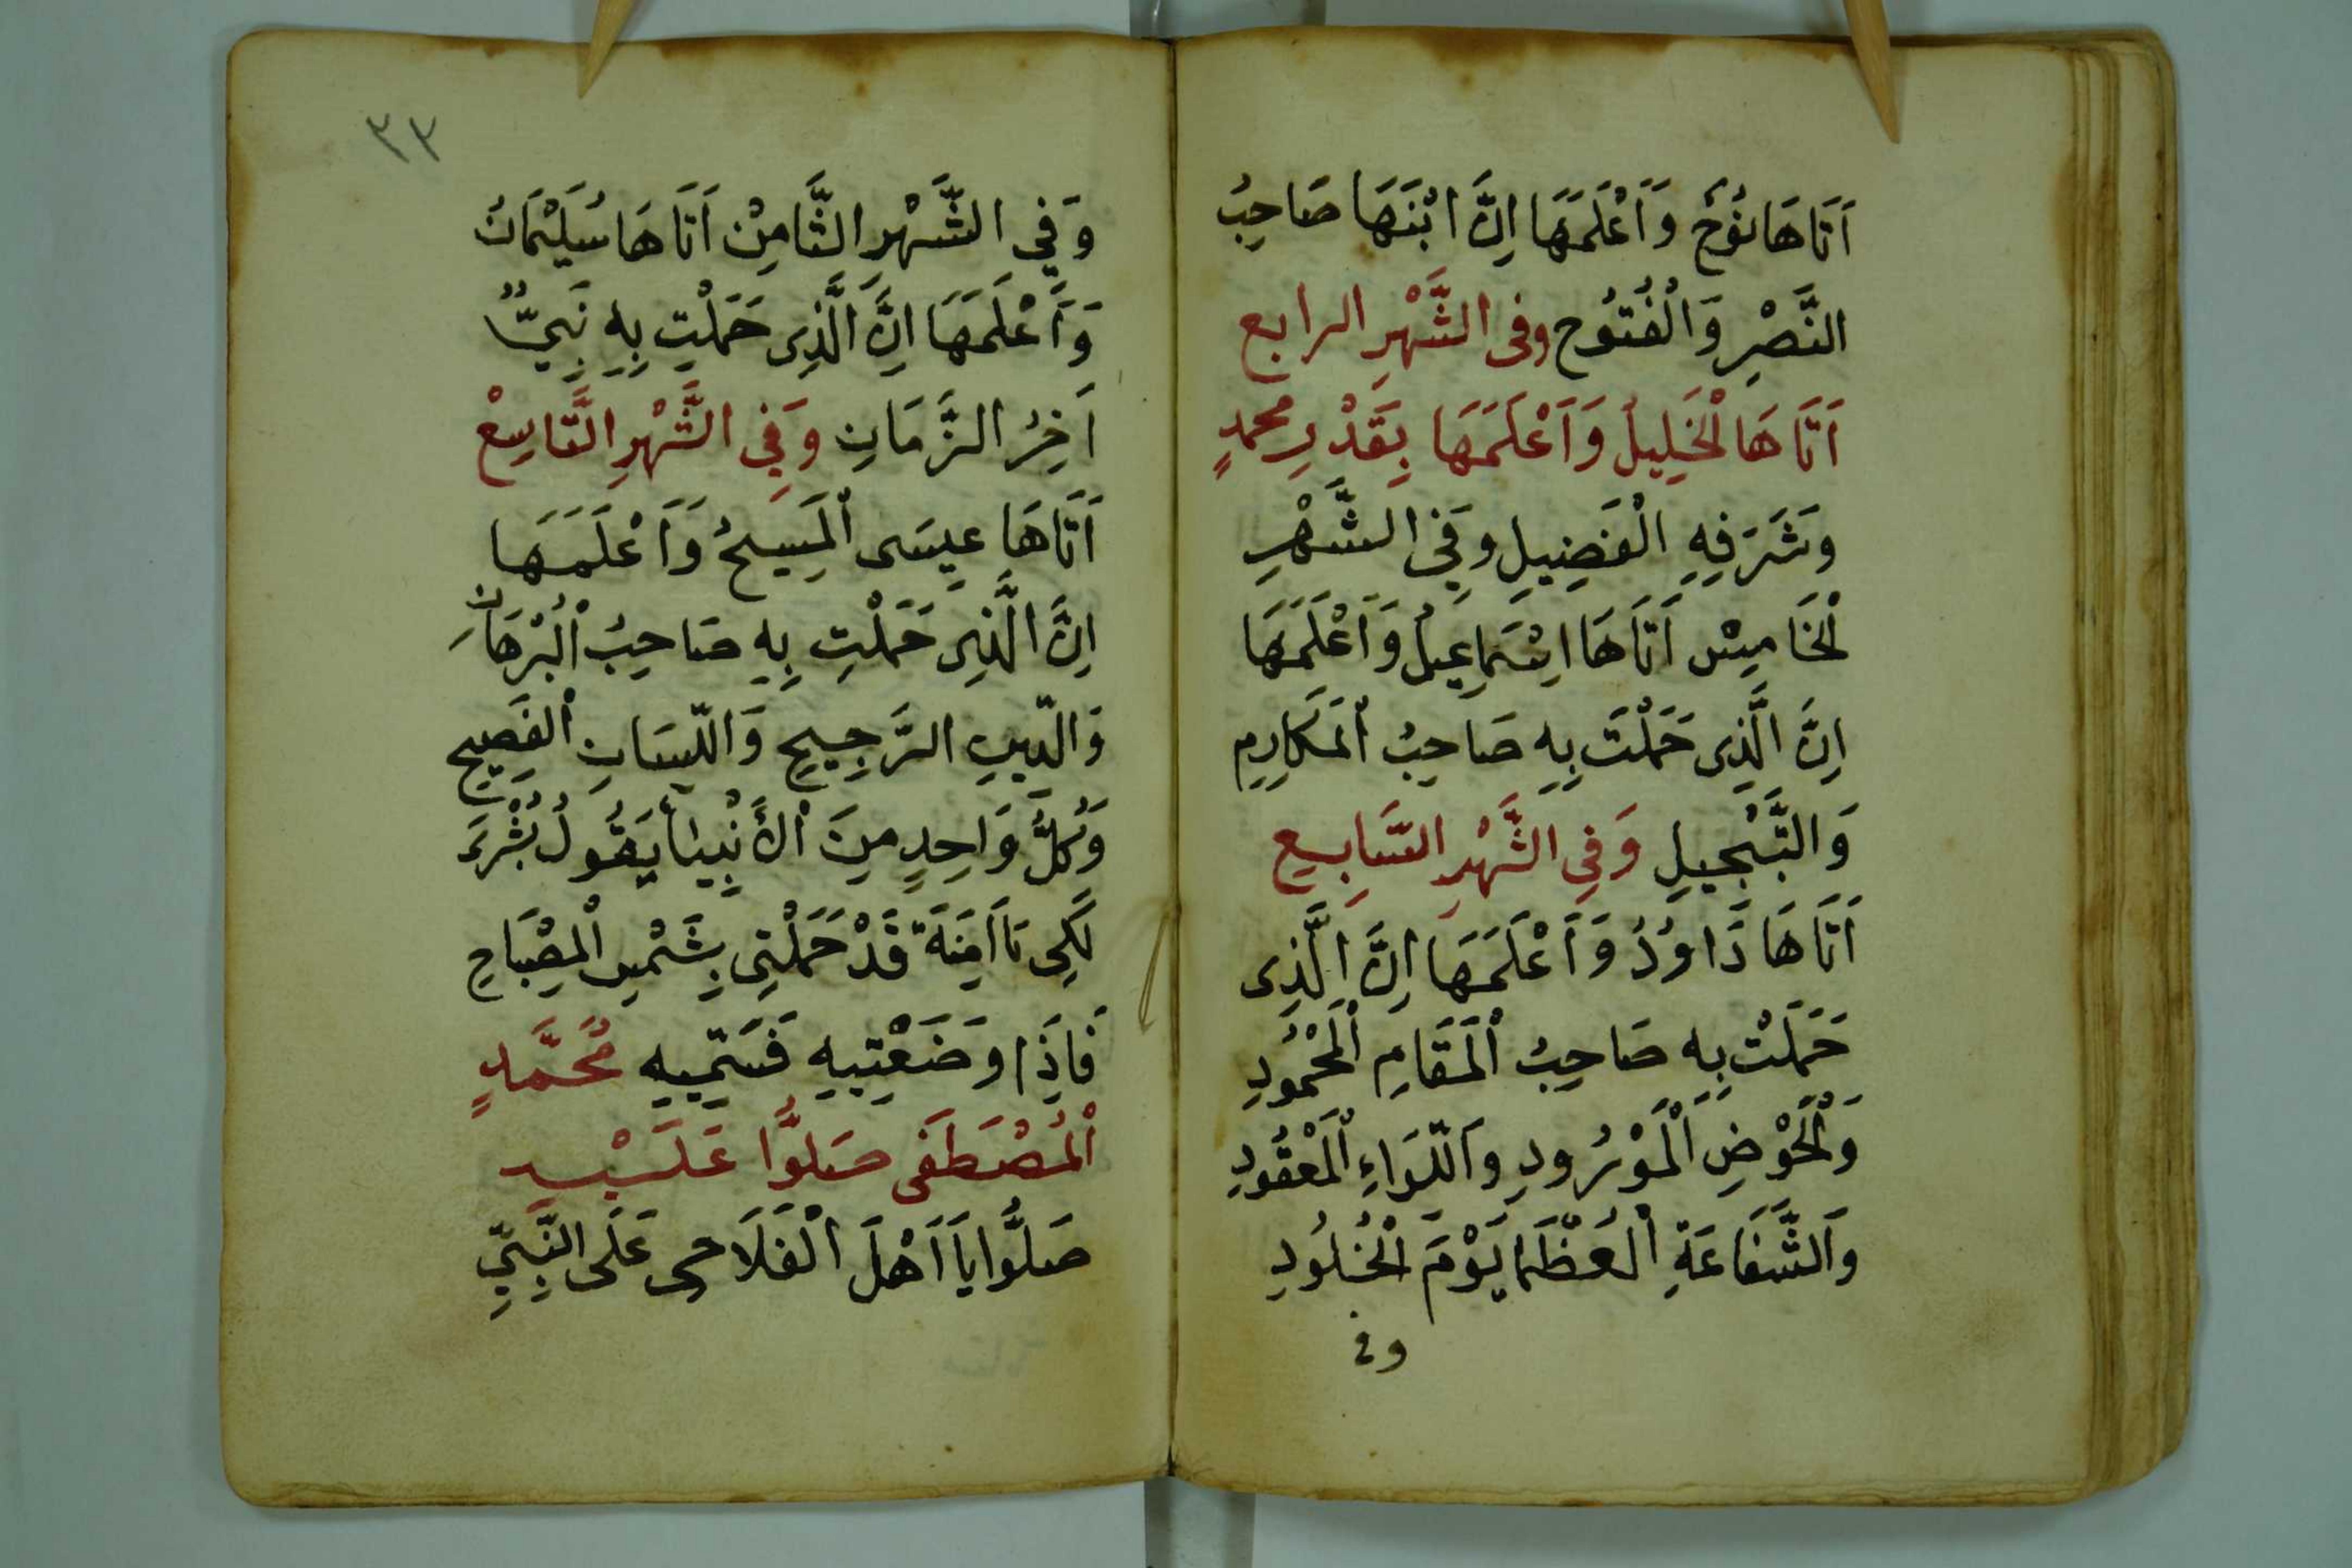 اَتَاهَا نُوْحٌ وَاَعْلَمَهَا اِنَّ ابْنَهَا صَاحِبُ
النَّصْرِ وَالْفُتُوْحِ وفى الشَّهْرِ الرابع
اَتَاهَا الْخَلِيلُ وَاَعْلَمَهَا بِقَدْرِ محمدٍ
وَشَرَفِهِ الْفَضِيلِ وَفِى الشَّهْرِ
الْخَامِسْ اَتَاهَا اِسْمَاعِيلُ وَاَعْلَمَهَا
اِنَّ الَّذِى حَمَلْتَ بِهِ صَاحِبُ الْمَكَارِمِ
وَالتَّبْجِيلِ وَفِى الشَّهْرِ السَّابِعِ
اَتَاهَا دَاوُدُ وَاَعْلَمَهَا اِنَّ الَّذِى
حَمَلَتْ بِهِ صَاحِبُ الْمَقَامِ الْمَحْمُودِ
وَلْحَوْضِ الْمَوْرُودِ وَاللِّوَاءِ الْمَعْقُودِ
وَالشَّفَاعَةِ الْعُظْمَا يَوْمَ الْخُلُودِ
وفى
٣٣
وَفِي الشَّهْرِ الثَّامِنْ اَتَاهَا سُلَيْمَانُ
وَاَعْلَمَهَا اِنَّ الَّذِى حَمَلْتِ بِهِ نَبِيًّا
اَخِرُ الزَّمَانِ وَفِي الشَّهْرِ التَّاسِعْ
اَتَاهَا عِيسَى الْمَسِيحُ وَاَعْلَمَهَا
اِنَّ الَّذِى حَمَلْتِ بِهِ صَاحِبُ الْبُرْهَانِ
وَالدِّينِ الرَّجِيحِ وَاللِّسَانِ الْفَصِيحِ
وَكُلُّ وَاحِدٍ مِنَ الْأَنْبِيَاْ يَقُولُ بُشْرَىَ
لَكِى يَا اَمِنَةَ قَدْ حَمَلْتِى بِشَمْسِ الْمِصْبَاحِ
فَاِذَا وَضَعْتِيهِ فَسَمِّيهِ مُحَمَّدٍ
الْمُصْطَفَى صَلُّوا عَلَيْهِ
صَلُّوا يَا اَهْلَ الْفَلَاحى عَلَى النَّبِيِّ